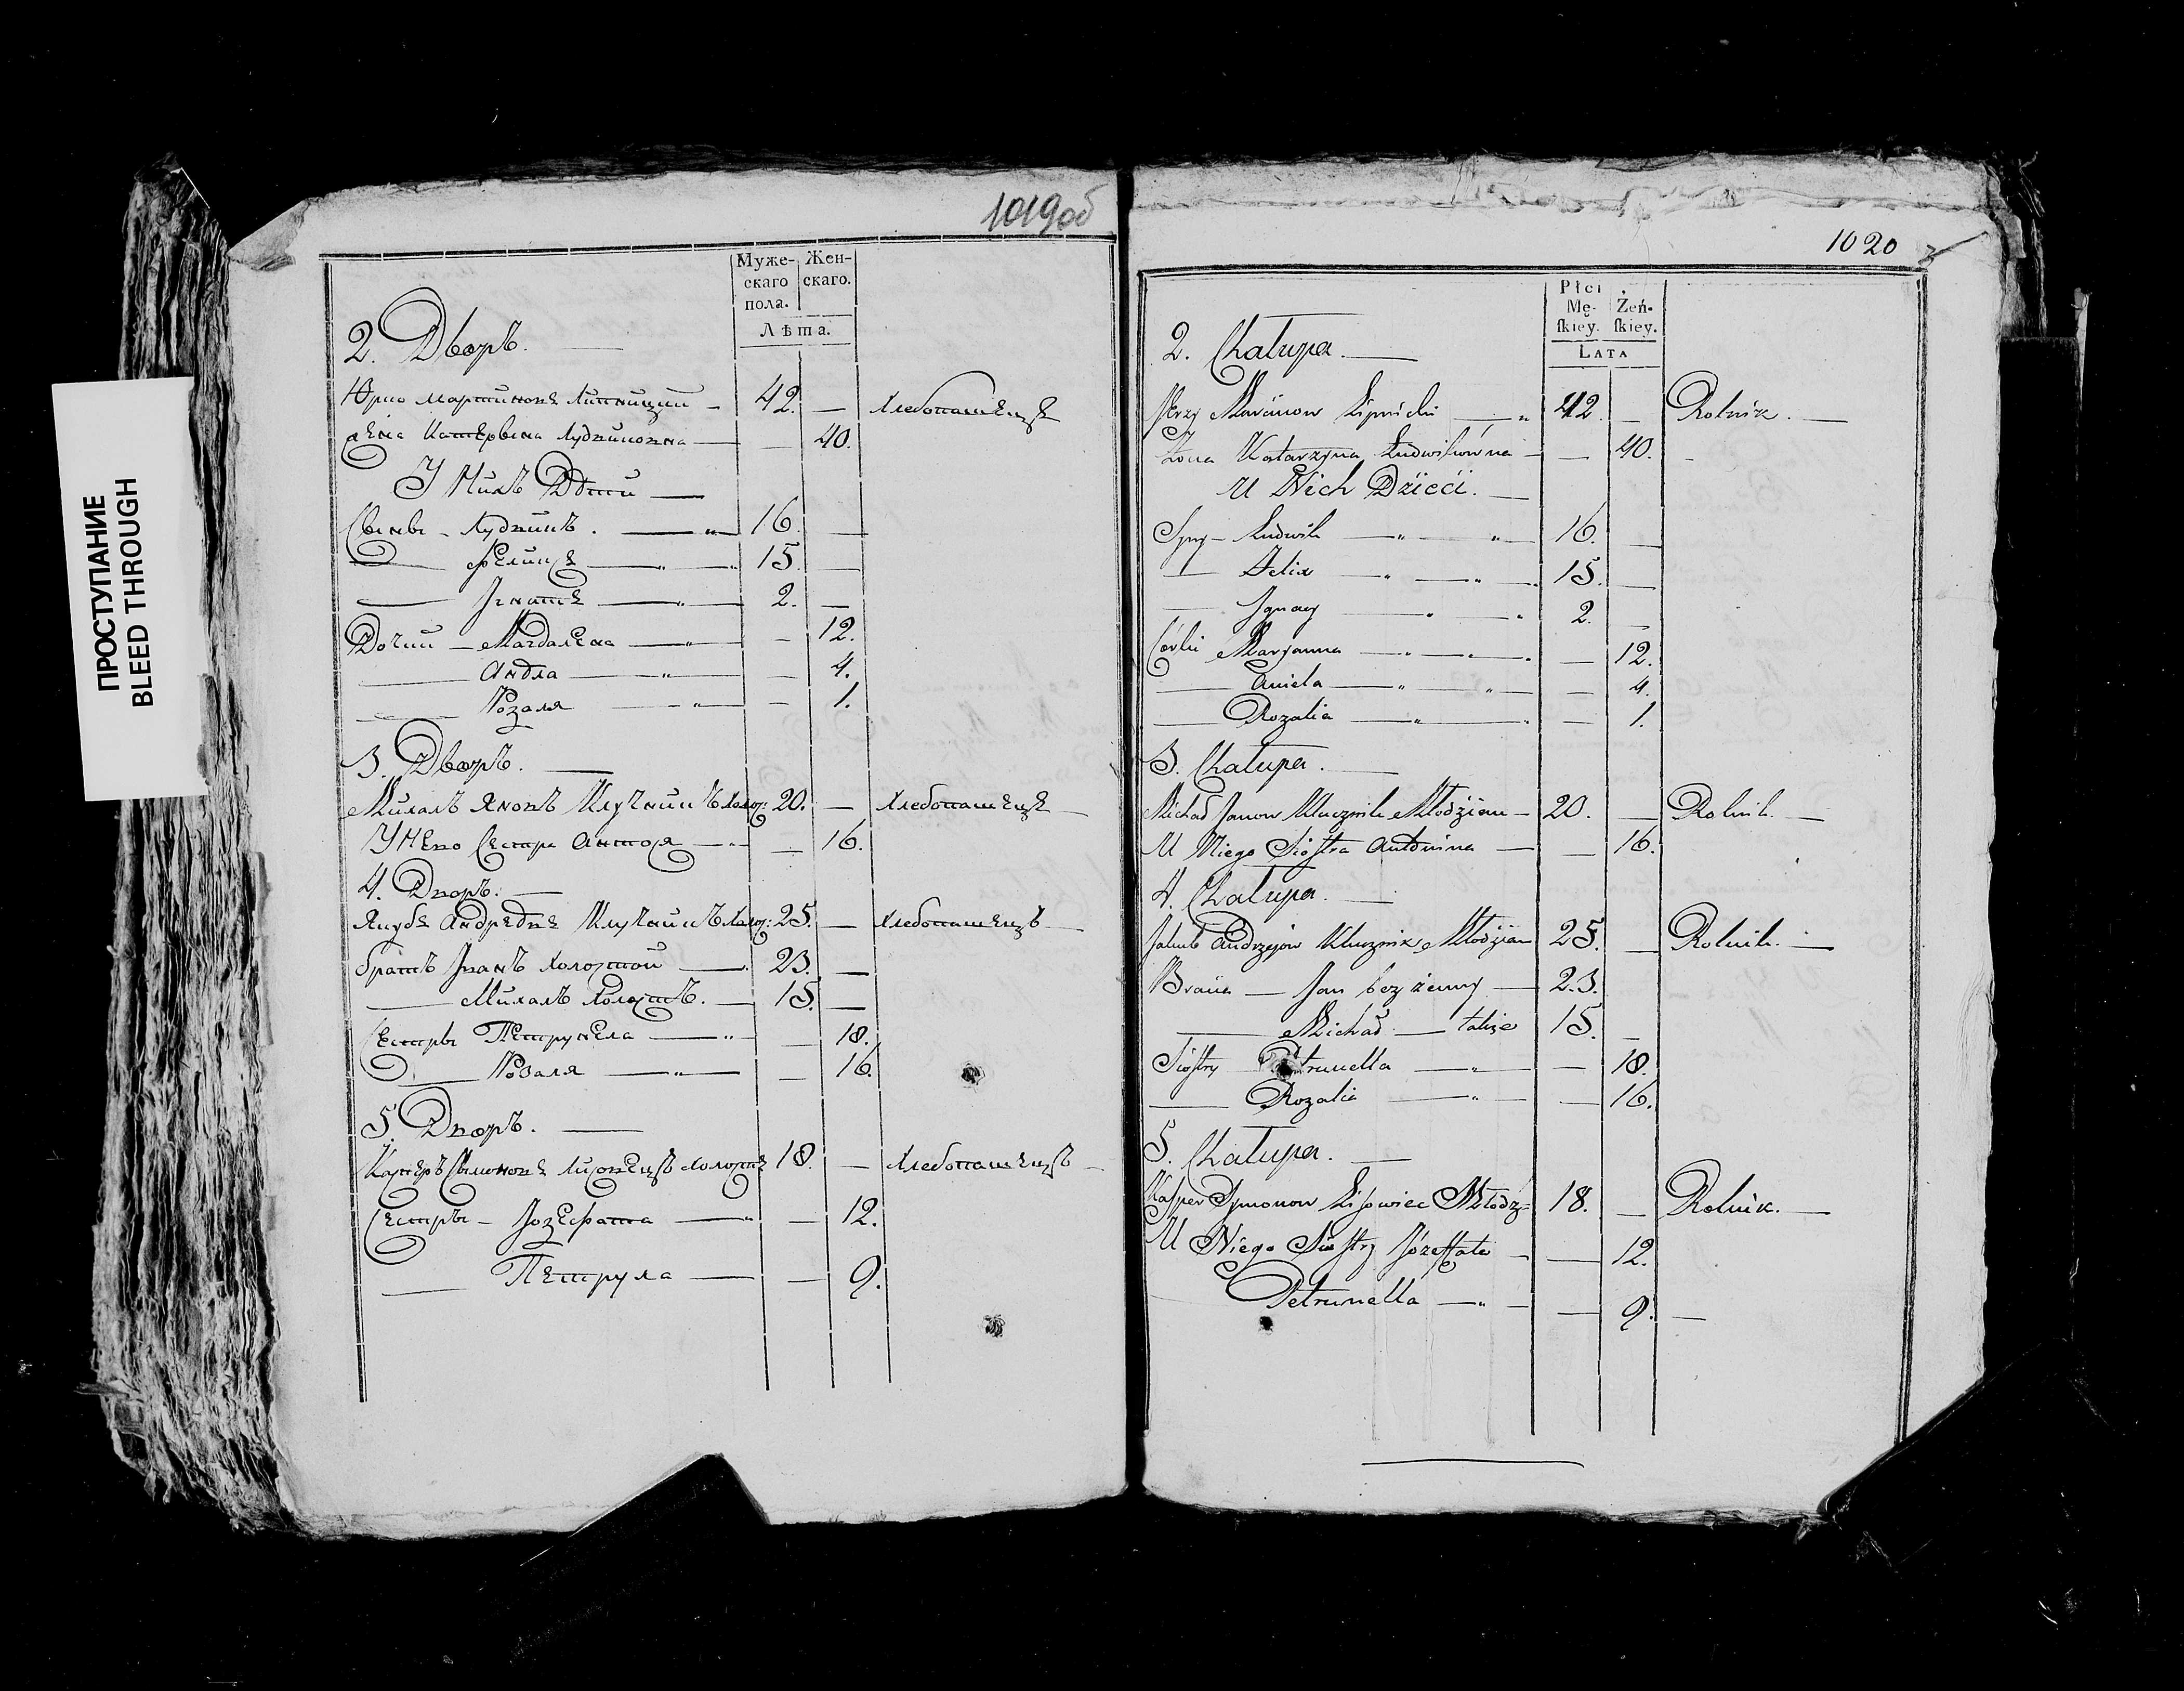 ПРОСТУПАНИЕ
BLEED THROUGH
1019об
Муже- Жен-
скаго скаго.
пола.
Лѣта.
2. Дворъ.
Юрио Мартиновъ Липницкий 42. — Хлебопашецъ
Жена Катервина Лудвиковна — 40.
У Нихъ Дѣти
Сыны - Лудвикъ. 16. —
— Феликсъ 15. —
— Игнатъ 2. —
Дочки - Магдалена — 12.
— Андла — 4.
— Розаля — 1.
3. Дворъ.
Михалъ Яновъ Ключникъ Холос: 20. — Хлебопашецъ
У Него Сестра Антося — 16.
4. Дворъ.
Якубъ Андреевъ Ключникъ Холос: 25. — Хлебопашецъ
братъ Иванъ Холостой 23. —
— Михалъ Холостъ. 15. —
Сестры Петрунела — 18.
— Розаля — 16.
5. Дворъ.
Касперъ Сымоновъ Лисовецъ Холостъ 18. — Хлебопашецъ
Сестры - Иозефата — 12.
— Петрула — 9.
1020
Płci
Mę- Żeń-
ſkiey. ſkiey.
LATA
2. Chałupa.
Jerzy Marcinow Lipnicki 42. — Rolnik.
Żona Katarzyna Ludwikówna — 40.
U Nich Dzieci.
Syny - Ludwik 16. —
— Felix 15. —
— Jgnacy 2. —
Córki Maryanna — 12.
— Aniela — 4.
— Rozalia — 1.
3. Chałupa.
Michał Janow Klucznik Młodzian 20. — Rolnik.
U Niego Sioſtra Antonina — 16.
4. Chałupa.
Jakub Andrzejow Klucznik Młodzian 25. — Rolnik.
Bracia — Jan bezżenny 23.
— Michał — także 15. —
Sioſtry Petrunella — 18.
— Rozalia — 16.
5. Chałupa.
Kaſper Symonow Liſowiec Młodz= 18. — Rolnik.
U Niego Sioſtry Józeffata — 12.
Petrunella — 9.